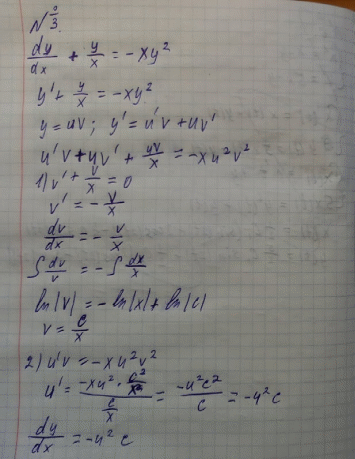 №3.
dy/dx + y/x = -xy²
y' + y/x = -xy²
y = uv; y' = u'v + uv'
u'v + uv' + uv/x = -xu²v²
1) v' + v/x = 0
v' = -v/x
dv/dx = -v/x
∫dv/v = -∫dx/x
ln|v| = -ln|x| + ln|c|
v = c/x
2) u'v = -xu²v²
u' = (-xu² · c²/x²)/(c/x) = -u²c²/c = -u²c
dy/dx = -u²c